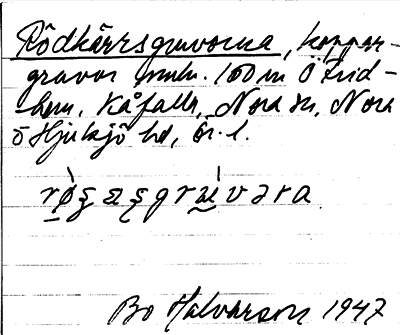 Rödkärrsgruvorna, koppar-
gruvor omkr. 100 m Ö Frid-
hem, Kåfalla, Nora sn, Nora
o Hjulsjö hd, Ör. l.
Bo Halvarson 1947